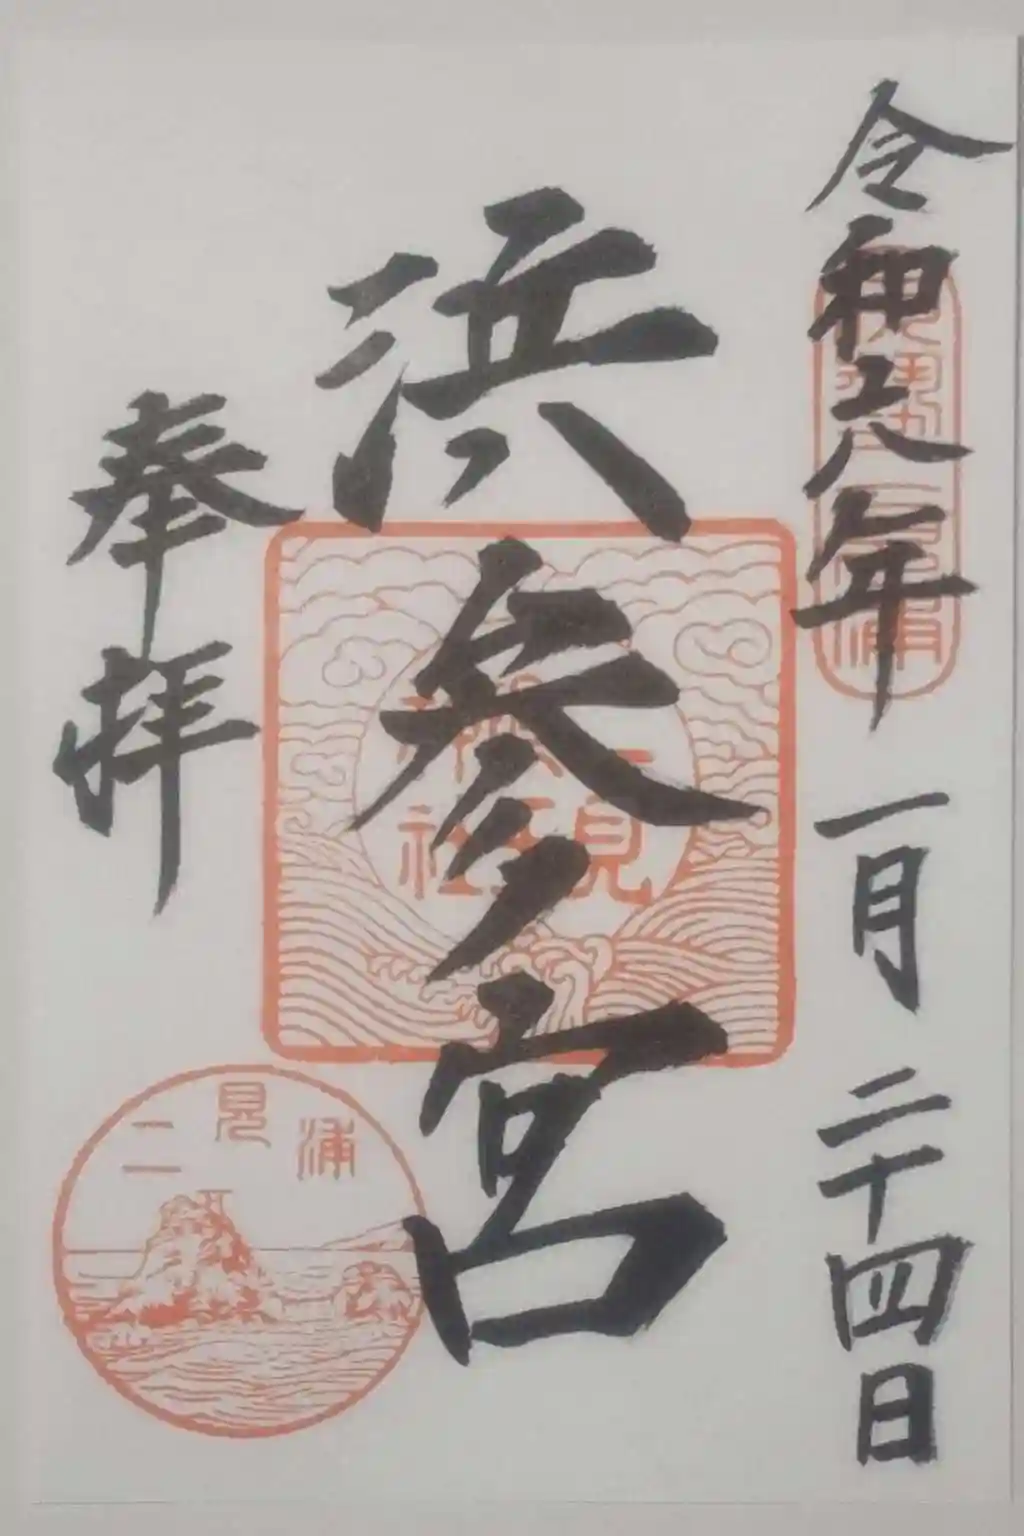 令和六年一月二十四日
伊勢二見浦
浜参宮
二見
興玉
神社
奉拝
二見浦